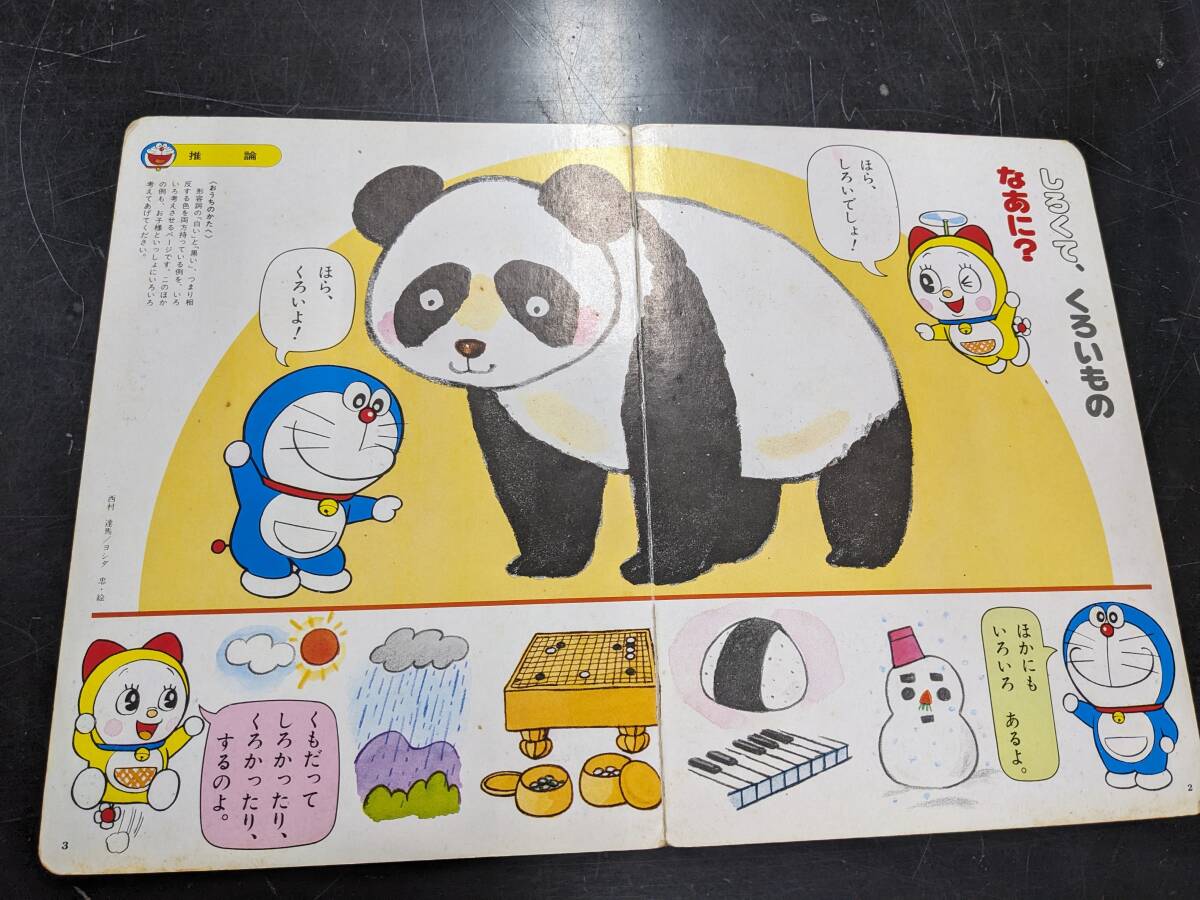 しろくて、くろいもの
なあに？
ほら、
しろいでしょ！
ほら、
くろいよ！
推論
〈おうちのかたへ〉
形容詞の「白い」と「黒い」、つまり相
反する色を両方持っている例を、いろ
いろ考えさせるページです。このほか
の例も、お子様といっしょにいろいろ
考えてあげてください。
西村 達馬／ヨシダ 忠・絵
ほかにも
いろいろ あるよ。
くもだって
しろかったり、
くろかったり、
するのよ。
2
3